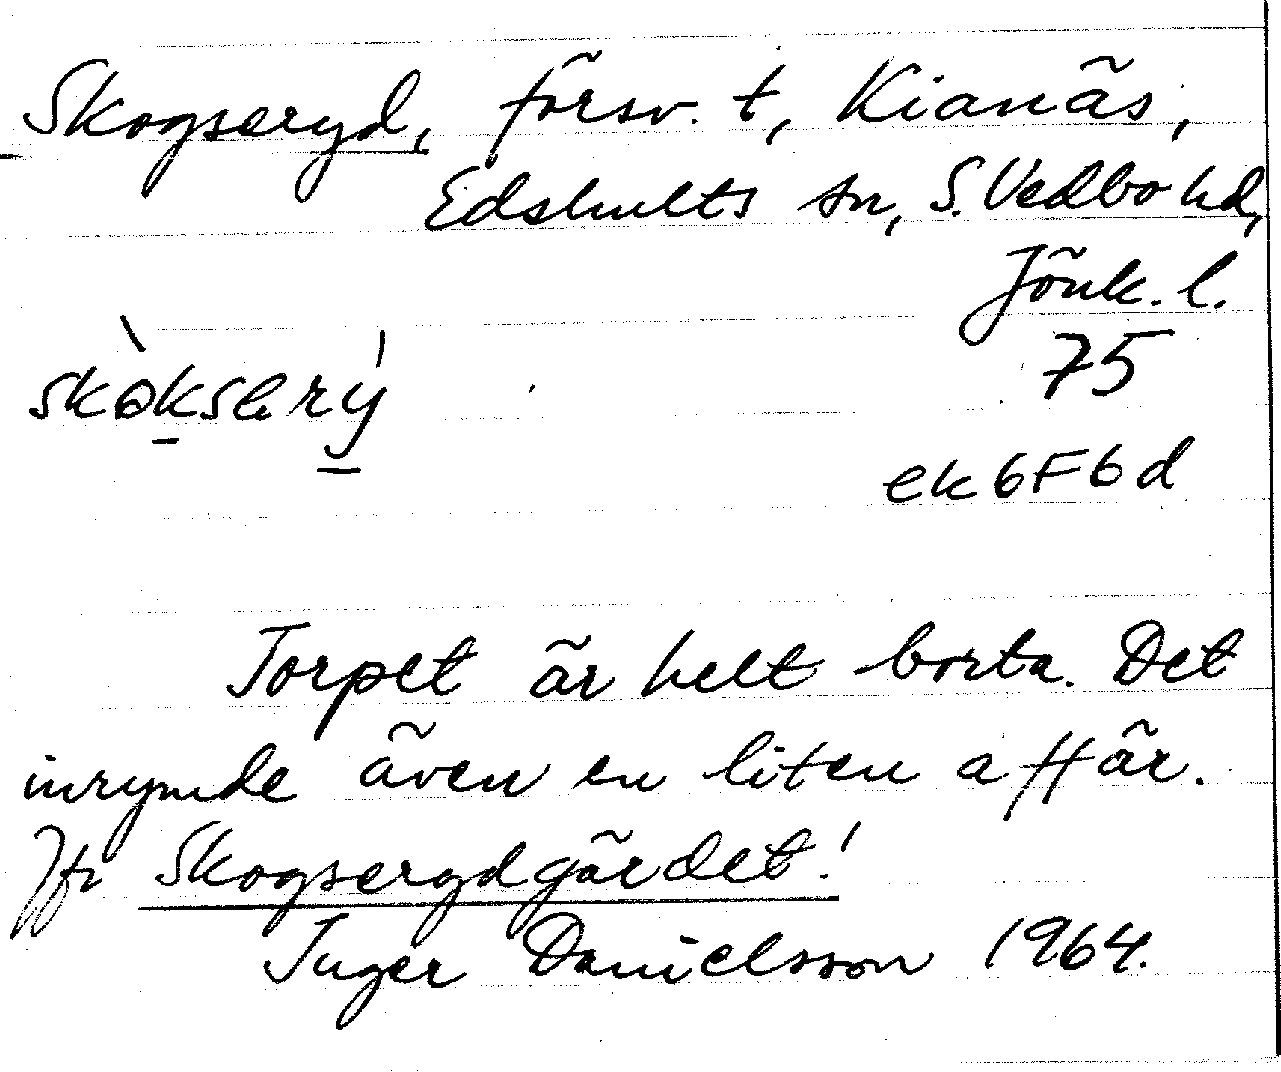 Skogseryd, försv. t, Kianäs,
Edshults sn, S. Vedbo hd,
Jönk. l.
75
skòkserý
ek6F6d
Torpet är helt borta. Det
inrymde även en liten affär.
Jfr Skogserydgärdet!
Inger Danielsson 1964.